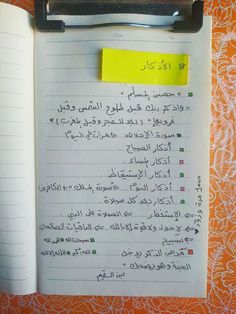 الأذكار
" حصن المسلم "
واذكر ربك قبل طلوع الشمس وقبل
غروبها " (بعد الفجر وقبل المغرب)
سورة الإخلاص ١٠ مرات في اليوم
أذكار الصباح.
أذكار المساء.
أذكار الإستيقاظ
أذكار النوم + سورة الملك + الكافرون
أذكار بعد كل صلاة.
الإستغفار الصلاة على النبي
لاحول ولا قوة إلا بالله الباقيات الصالحات
تسبيح سبحان الله الحمد لله
الله أكبر لا إله إلا الله
" مدمن الذكر يدخل
الجنة وهو يضحك "
ابن القيم
١٠٠٠ مرة